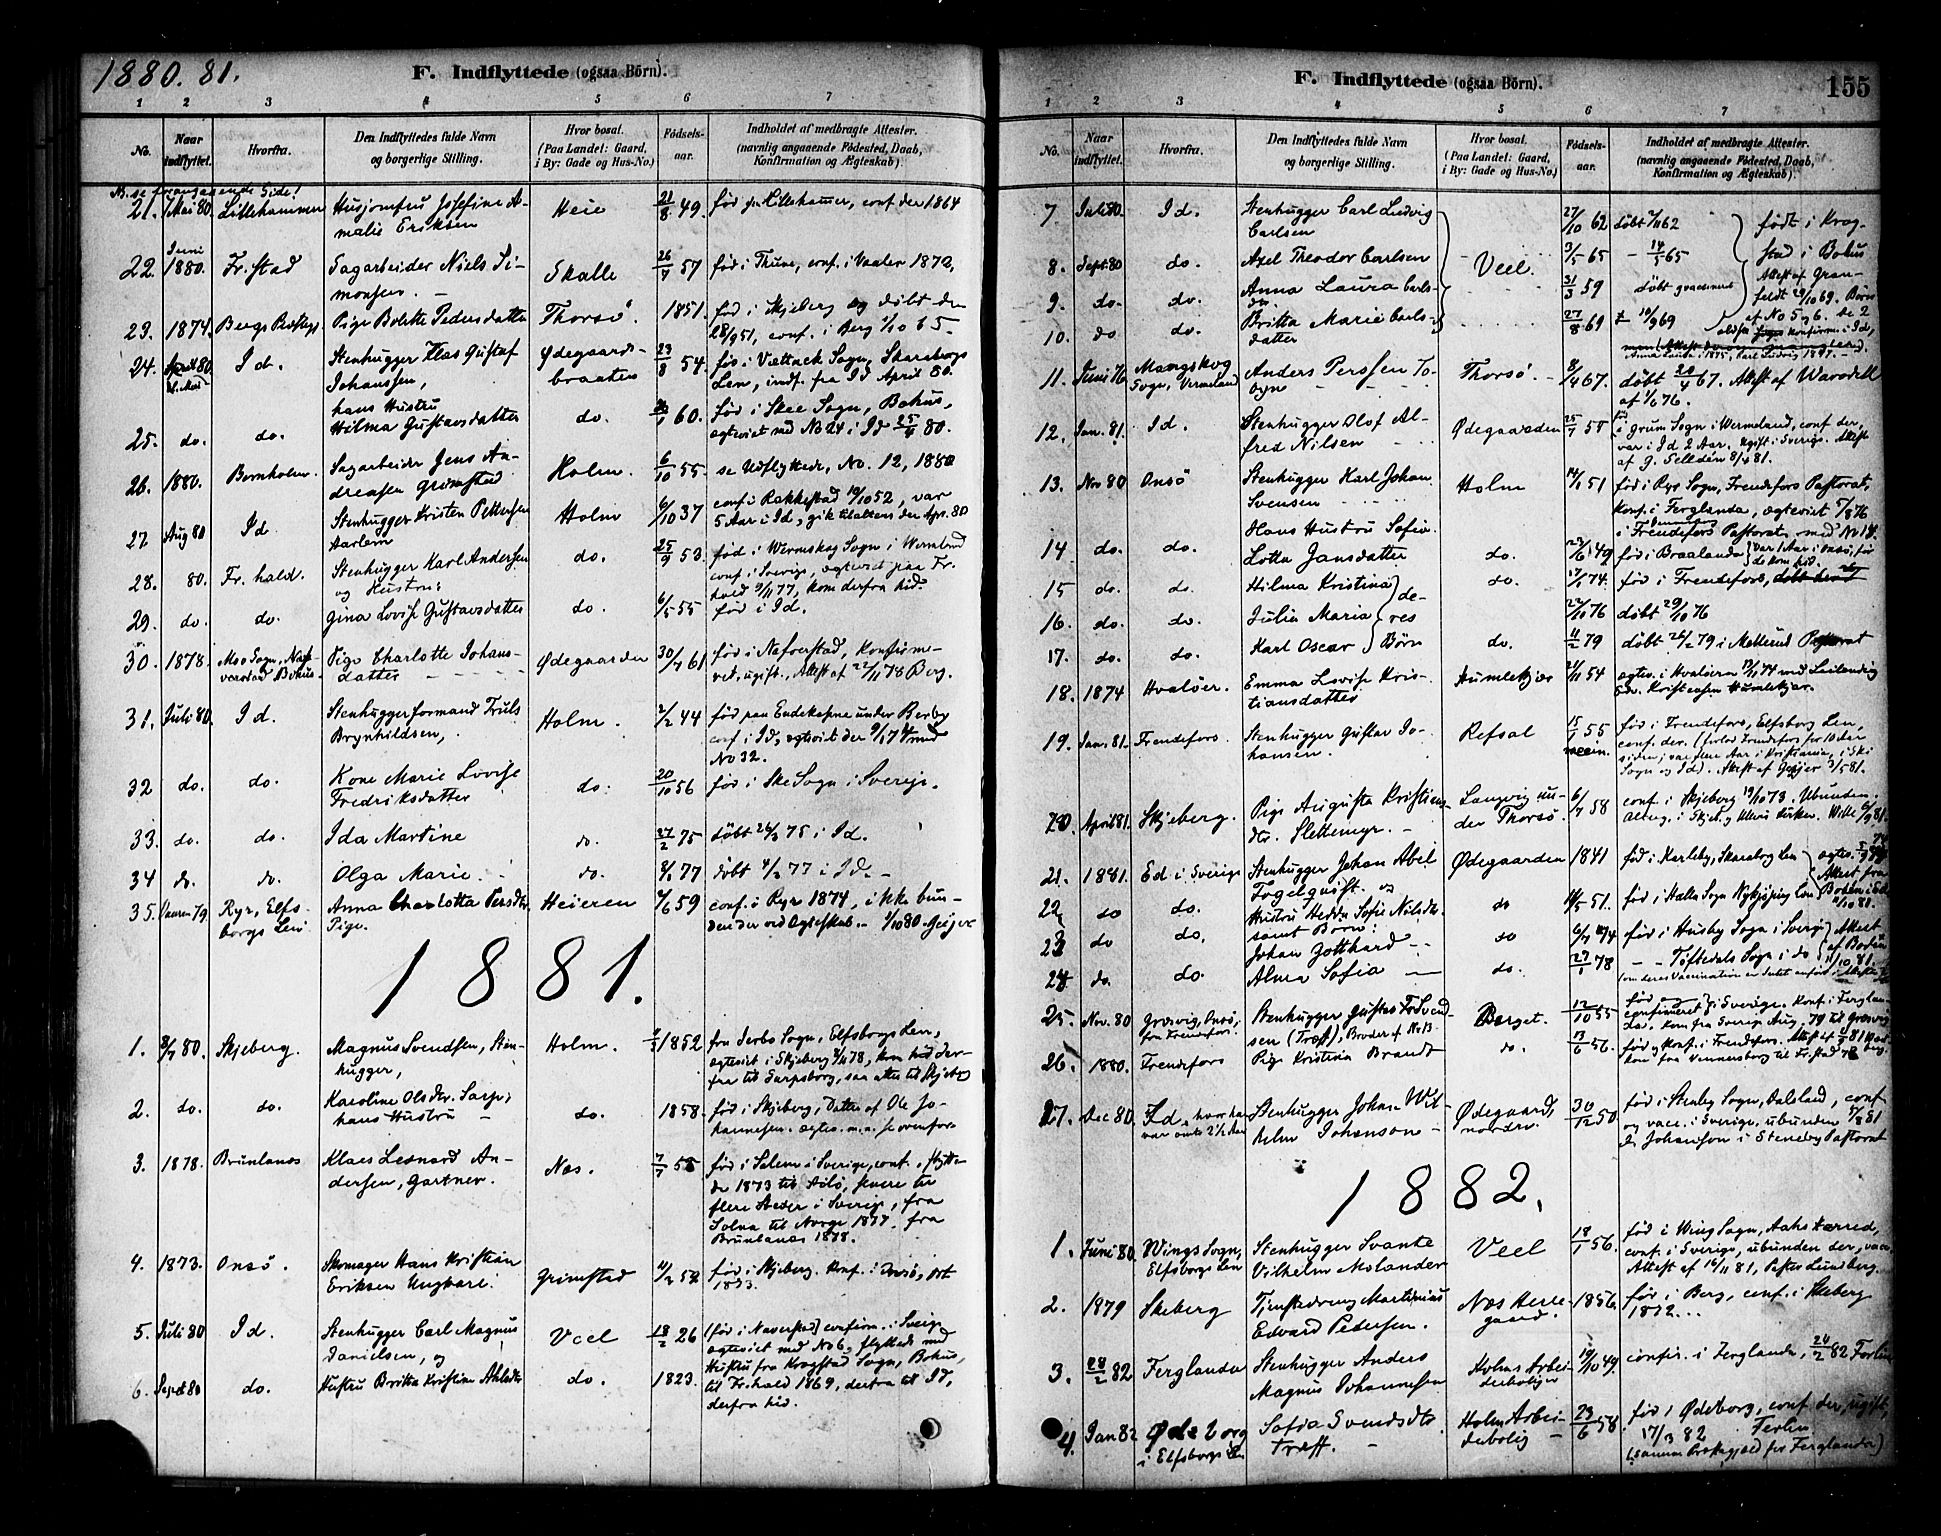 1880. 81.
F. Indflyttede (ogsaa Börn).
1 2 3 4 5 6 7
No.
Naar indflyttet.
Hvorfra.
Den Indflyttedes fulde Navn og borgerlige Stilling.
Hvor bosat. (Paa Landet: Gaard, i By: Gade og Hus-No.)
Födselsaar.
Indholdet af medbragte Attester. (navnlig angaaende Födested, Daab, Konfirmation og Ægteskab).
NB. se foregaaende Side!
21. 7 Mai 80. Lillehammer Husjomfru Josefine A-
malie Eriksen Heie 21/8 49 født paa Lillehamer, conf der 1864
22. Juni 1880. Fr.stad Sagarbeider Niels Si-
monsen. Skalle 26/4 57 fød i Thune, conf. i Vaaler 1872,
23. 1874. Bergs Præstegj. Pige Bolette Pedersdatter Thorsö. 1851. fød i Skjeberg og døbt den
28/9 51, conf. i Berg 1/10 65.
24. April 80 Id. Stenhugger Klas Gustaf
Johanssen, Ødegaards-
braaten 23/8 54. fød i Sogn, Skaraborgs
Len, indf. fra Id April 80.
25. do. do. hans Hustru
Hilma Gustavsdatter do. 60. født i Skee Sogn, Bohus,
ægteviet med No 24 i Id 25/4 80.
26. 1880. Bornholm. Sagarbeider Jens An-
dreasen Grimstad Holm. 6/10 55 se Udflyttede, No. 12, 1880
27 Aug 80 Id Stenhugger Kristen Pettersen
Aarlem Holm 6/10 37 conf i Rakkestad 19/10 52, var
5 Aar i Id, gik til alters der Apr. 80
28. 80. Fr. hald. Stenhugger Karl Andersen
og Hustru: do. 25/9 53. fød i Sogn i Wermland
conf i Sverige, ægteviet paa Fr.
hald 9/11 77, kom derfra hid.
29. do. do. Gina Lovise Gustavsdatter do. 6/5 55 født i Id.
30. 1878. Moo Sogn, Naf-
verstad Bohus. Pige Charlotte Johans-
datter Ødegaarden 30/7 61 født i Nafverstad, Konfirme-
ret, ugift., Attest af 22/11 78 Berg.
31. Juli 80. Id. Stenhuggerformand Truls
Brynhildsen, Holm. 2/2 44 fød paa Endekopne under Berby
conf. i Id, ægteviet der 9/1 74 med
No 32.
32 do. do. Kone Marie Lovise
Fredriksdatter do. 20/10 56 født i Ske Sogn i Sverige.
33. do. do. Ida Martine do. 27/2 75 døbt 26/3 75 i Id.
34 do. do. Olga Marie. do. 2/1 77 døbt 4/2 77 i Id.
35. Vaaren 79. Ryr, Elfs-
borgs Len Anna Charlotta Persdtr
Pige. Heieren 4/6 59 conf. i Ryr 1874, ikke bun-
den der ved Ægteskab. 1/10 80. Geijer
1881.
1. 3/7 80. Skjeberg. Magnus Svendsen, Sten-
hugger, Holm. 1852 fra Jerbo Sogn, Elfsborgs Len,
ægteviet i Skjeberg 78, kom hid der-
fra til Sarpsborg, saa atter til Skjeberg
2. do. do. Karoline Olsdtr. Sarp,
hans Hustru do. 1858. fød i Skjeberg, Datter af Ole Jo-
hannesen. ægtev. m.m. se ovenfor
3. 1878. Brunlanæs Klaes Leonard An-
dersen, Gartner. Næs. 7/7 55 fød i Salem i Sverige, conf., flytte-
de 1873 til , senere til
flere Steder i Sverige, fra
Solna til Norge 1877. fra
Brunlanæs 1878.
4. 1873. Onsö. Skomager Hans Kristian
Eriksen Ungkarl. Grimstad 4/2 52 født i Skjeberg. Konf. i Onsö,
1873.
5. Juli 80 Id. Stenhugger Carl Magnus
Danielsen, og Veel 18/2 26 (fød i Naverstad) confirm. i Sverige
ægteviet med No 6, flyttede med
Hustru fra Krogstad Sogn, Bohus,
til Fr.hald 1869, derfra til Id,
derfra hid.
6. Sept 80 do. Hustru Britta Kristine do. 1823.
F. Indflyttede (ogsaa Börn).
155
1 2 3 4 5 6 7
No.
Naar indflyttet.
Hvorfra.
Den Indflyttedes fulde Navn og borgerlige Stilling.
Hvor bosat. (Paa Landet: Gaard, i By: Gade og Hus-No.)
Födselsaar.
Indholdet af medbragte Attester. (navnlig angaaende Födested, Daab, Konfirmation og Ægteskab).
7 Juli 80 Id. Stenhugger Carl Ludvig
Carlsen 27/10 62 døbt 62 født i Krog-
stad i Bohus
8. Sept 80 do. Axel Theodor Carlsen Veel. 3/5 65 14/5 65
Attest af Gran-
feldt 29/10 69. Børn
af No 5 og 6.
9. do. do. Anna Laura Carls-
dtr. 31/3 59 døbt
10. do do. Britta Marie Carls-
datter 27/8 69 10/9 69
11. Juni 76 Mangskog
Sogn, Vermland Anders Perssen To-
byn Thorsö. 8/4 67. døbt 20/4 67. Attest af
af 1/6 76.
12. Jan. 81. Id. Stenhugger Olof Al-
fred Nilsen Ødegaarden 25/7 58 fød i Grums Sogn i Wermland, conf der,
var i Id 2 Aar. Ugift i Sverige. Attest
af G. Selldén 8/4 81.
13. Nov 80 Onsö Stenhugger Karl Johan
Svensen Holm 14/1 51 fød i Ryr Sogn, Frendefors Pastorat,
Konf. i Ferglanda, ægteviet 5/8 76
i Frendefors Pastorat med No 14.
14 do. do. Hans Hustru Sofia
Lotta Jansdatter do. 23/6 49 fød i Braalanda, var 1 Aar i Onsö, før
de kom hid.
15 do. do. Hilma Kristina do. 17/1 74. fød i Frendefors,
16. do. do. Julia Maria 22/10 76 døbt 29/10 76
17. do. do. Karl Oscar do. 4/2 79 døbt 26/2 79 i Pastorat
deres Børn
18. 1874 Hvaløer. Emma Lovise Kris-
tiansdatter Humlekjær 21/11 54 ægtev. i Hvaløerne 74 med
Kristensen Humlekjær.
19. Jan. 81. Frendefors. Stenhugger Gustav Jo-
hansen. Refsal 15/1 55
vaccin. fød i Frendefors, Elfsborg Len,
conf. der. (forlod Frendefors for 10 Aar
siden; var flere Aar i Kristiania, i Ski
Sogn og Id). Attest af Geijer 3/5 81.
20. April 81. Skjeberg. Pige Augusta Kristians-
dtr. Slettemyr. Langvig un-
der Thorsö. 6/7 58 conf. i Skjeberg 19/10 73. Ubunden.
21. 1881. Ed i Sverige Stenhugger Johan Abel
Fogelqvist. og Ødegaarden 1841 fød i Karleby, Skaraborg Len
22 do do. Hustru Hedda Sofie Nilsdtr. do 4/5 51. fød i Halla Sogn Nykjöping Len
samt Børn:
23 do do. Johan Gotthard do 6/7 74 fød i Husby Sogn i Sverige
24 do. do. Alma Sofia do. 27/1 78 Töftedals Sogn i do
25. Nov. 80 Græsvig, Onsö,
fra Frendefors. Stenhugger Gustav Fr. Svend-
sen (Træff), Broder af No 13 Berget. 12/10 55 fød og confirmeret i Sverige. Konf. i Ferglan-
da. Kom fra Sverige Aug. 79 til Græsvig
26. 1880. Frendefors Pige Kristina Brandt do. 13/6 56. fød og konf. i Frendefors.
kom fra Vennersborg til Fr.stad
27. Dec 80 Id, hvor han
var omtr 2½ Aar Stenhugger Johan Wil-
helm Johanson Ødegaard,
nordre. 30/12 50 født i Stenby Sogn, Dalsland, conf
og vacc. i Sverige, ubunden 81
Johansson i Steneby Pastorat
1882.
1. Juni 80. Wings Sogn,
Elfsborgs Len Stenhugger Svante
Vilhelm Molander Veel 18/1 56. fød i Wing Sogn, Aahs Hærred,
conf. i Sverige, ubunden der, vacc.
Attest af 16/11 81, Lundberg.
2. 1879 Skeberg Tjenestedreng Martinius
Edvard Pedersen. Næs Herre-
gaard. 1856. fød i Berg, conf. i Skeberg
1872...
3. 28/2 82 Ferglanda Stenhugger Anders
Magnus Johannesen Holms Arbei-
derboliger 19/10 49. confir. i Ferglanda, 24/2 82 Forlin
4. Jan 82 Ödeborg
i Elfsborgs Len Sofia Svendsdtr
Træff. Holm Arbei-
derbolig 23/6 58. fød i Ødeborg, conf der, ugift,
17/3 82 Forlin
(samme Præstegjæld for Ferglanda)